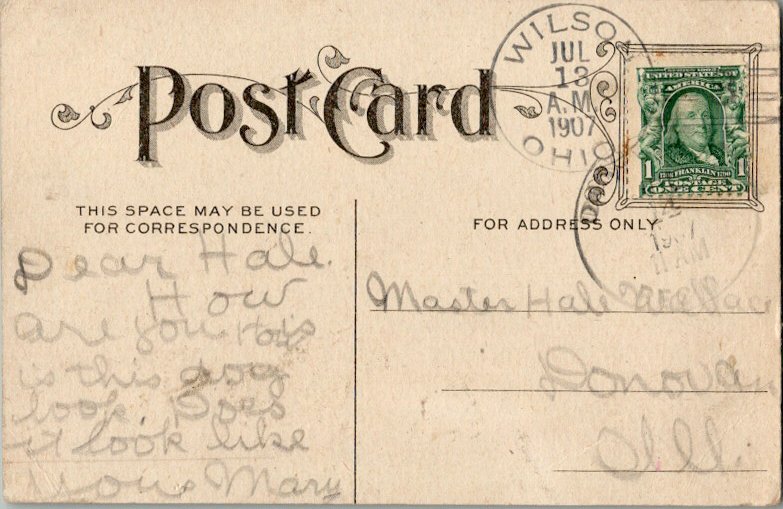 Post Card
WILSO
JUL
13
A.M.
1907
OHIO
UNITED STATES OF
AMERICA
1 1706 FRANKLIN 1790 1
POSTAGE
ONE CENT
THIS SPACE MAY BE USED
FOR CORRESPONDENCE.
FOR ADDRESS ONLY
1907
11 AM
REC'D
Dear Hale.
How
are you
How
is this dog
look. Does
it look like
yours Mary
Master Hale
Donovan
Ill.